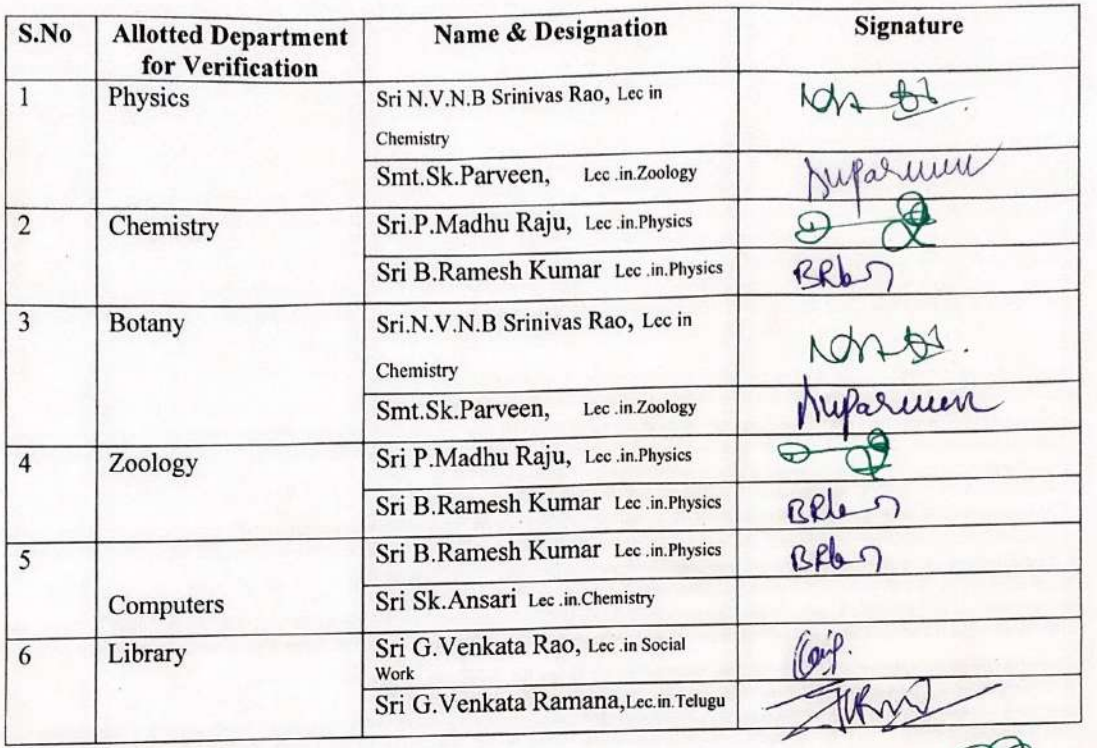 S.No Allotted Department Name & Designation Signature
for Verification
1 Physics Sri N.V.N.B Srinivas Rao, Lec in
Chemistry
Smt.Sk.Parveen, Lec .in.Zoology
2 Chemistry Sri.P.Madhu Raju, Lec .in.Physics
Sri B.Ramesh Kumar Lec .in.Physics
3 Botany Sri.N.V.N.B Srinivas Rao, Lec in
Chemistry
Smt.Sk.Parveen, Lec .in.Zoology
4 Zoology Sri P.Madhu Raju, Lec .in.Physics
Sri B.Ramesh Kumar Lec .in.Physics
5 Sri B.Ramesh Kumar Lec .in.Physics
Computers Sri Sk.Ansari Lec .in.Chemistry
6 Library Sri G.Venkata Rao, Lec .in Social
Work
Sri G.Venkata Ramana,Lec.in.Telugu